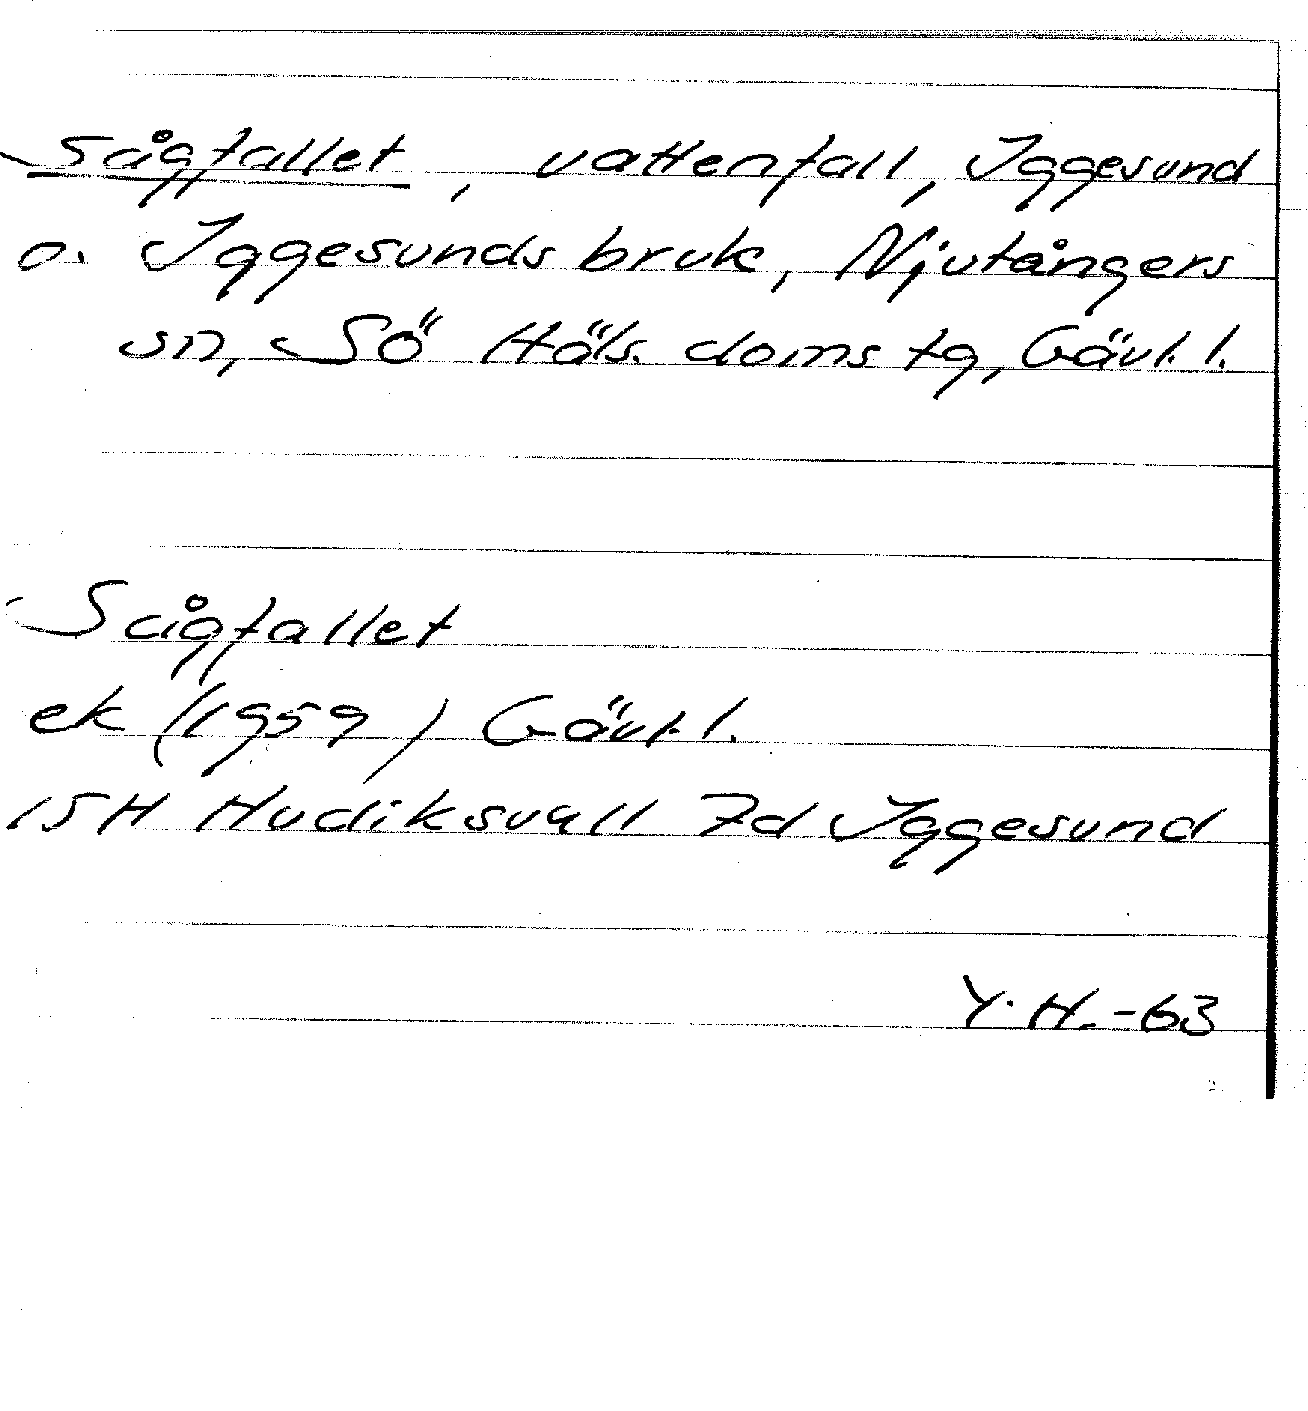 Sågfallet, vattenfall, Iggesund
o. Iggesunds bruk, Njutångers
sn, Sö Häls. doms tg, Gävl. l.
Sågfallet
ek (1959) Gävl. l.
15H Hudiksvall 7d Iggesund
Y. H. -63